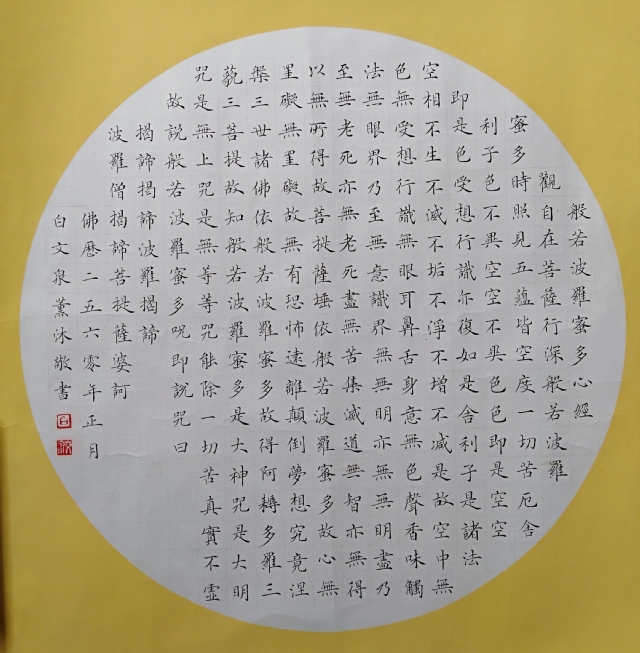 般若波羅蜜多心經
觀自在菩薩行深般若波羅
蜜多時照見五蘊皆空度一切苦厄舍
利子色不異空空不異色色即是空空
即是色受想行識亦復如是舍利子是諸法
空相不生不滅不垢不淨不增不減是故空中無
色無受想行識無眼耳鼻舌身意無色聲香味觸
法無眼界乃至無意識界無無明亦無無明盡乃
至無老死亦無老死盡無苦集滅道無智亦無得
以無所得故菩提薩埵依般若波羅蜜多故心無
罣礙無罣礙故無有恐怖遠離顛倒夢想究竟涅
槃三世諸佛依般若波羅蜜多故得阿耨多羅三
藐三菩提故知般若波羅蜜多是大神咒是大明
咒是無上咒是無等等咒能除一切苦真實不虛
故說般若波羅蜜多呪即說咒曰
揭諦揭諦波羅揭諦
波羅僧揭諦菩提薩婆訶
佛曆二五六零年正月
白文泉薰沐敬書